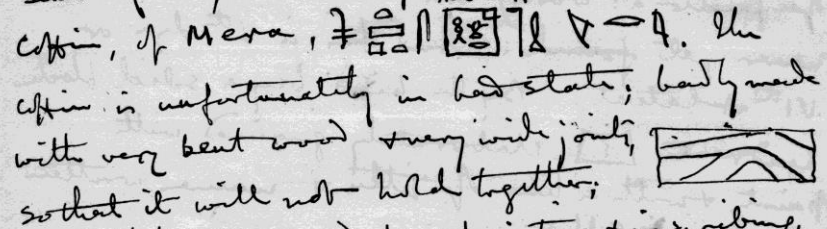 coffin, of Mera, . The
coffin is unfortunately in bad state; badly made
with very bent wood & very wide joints,
so that it will not hold together;